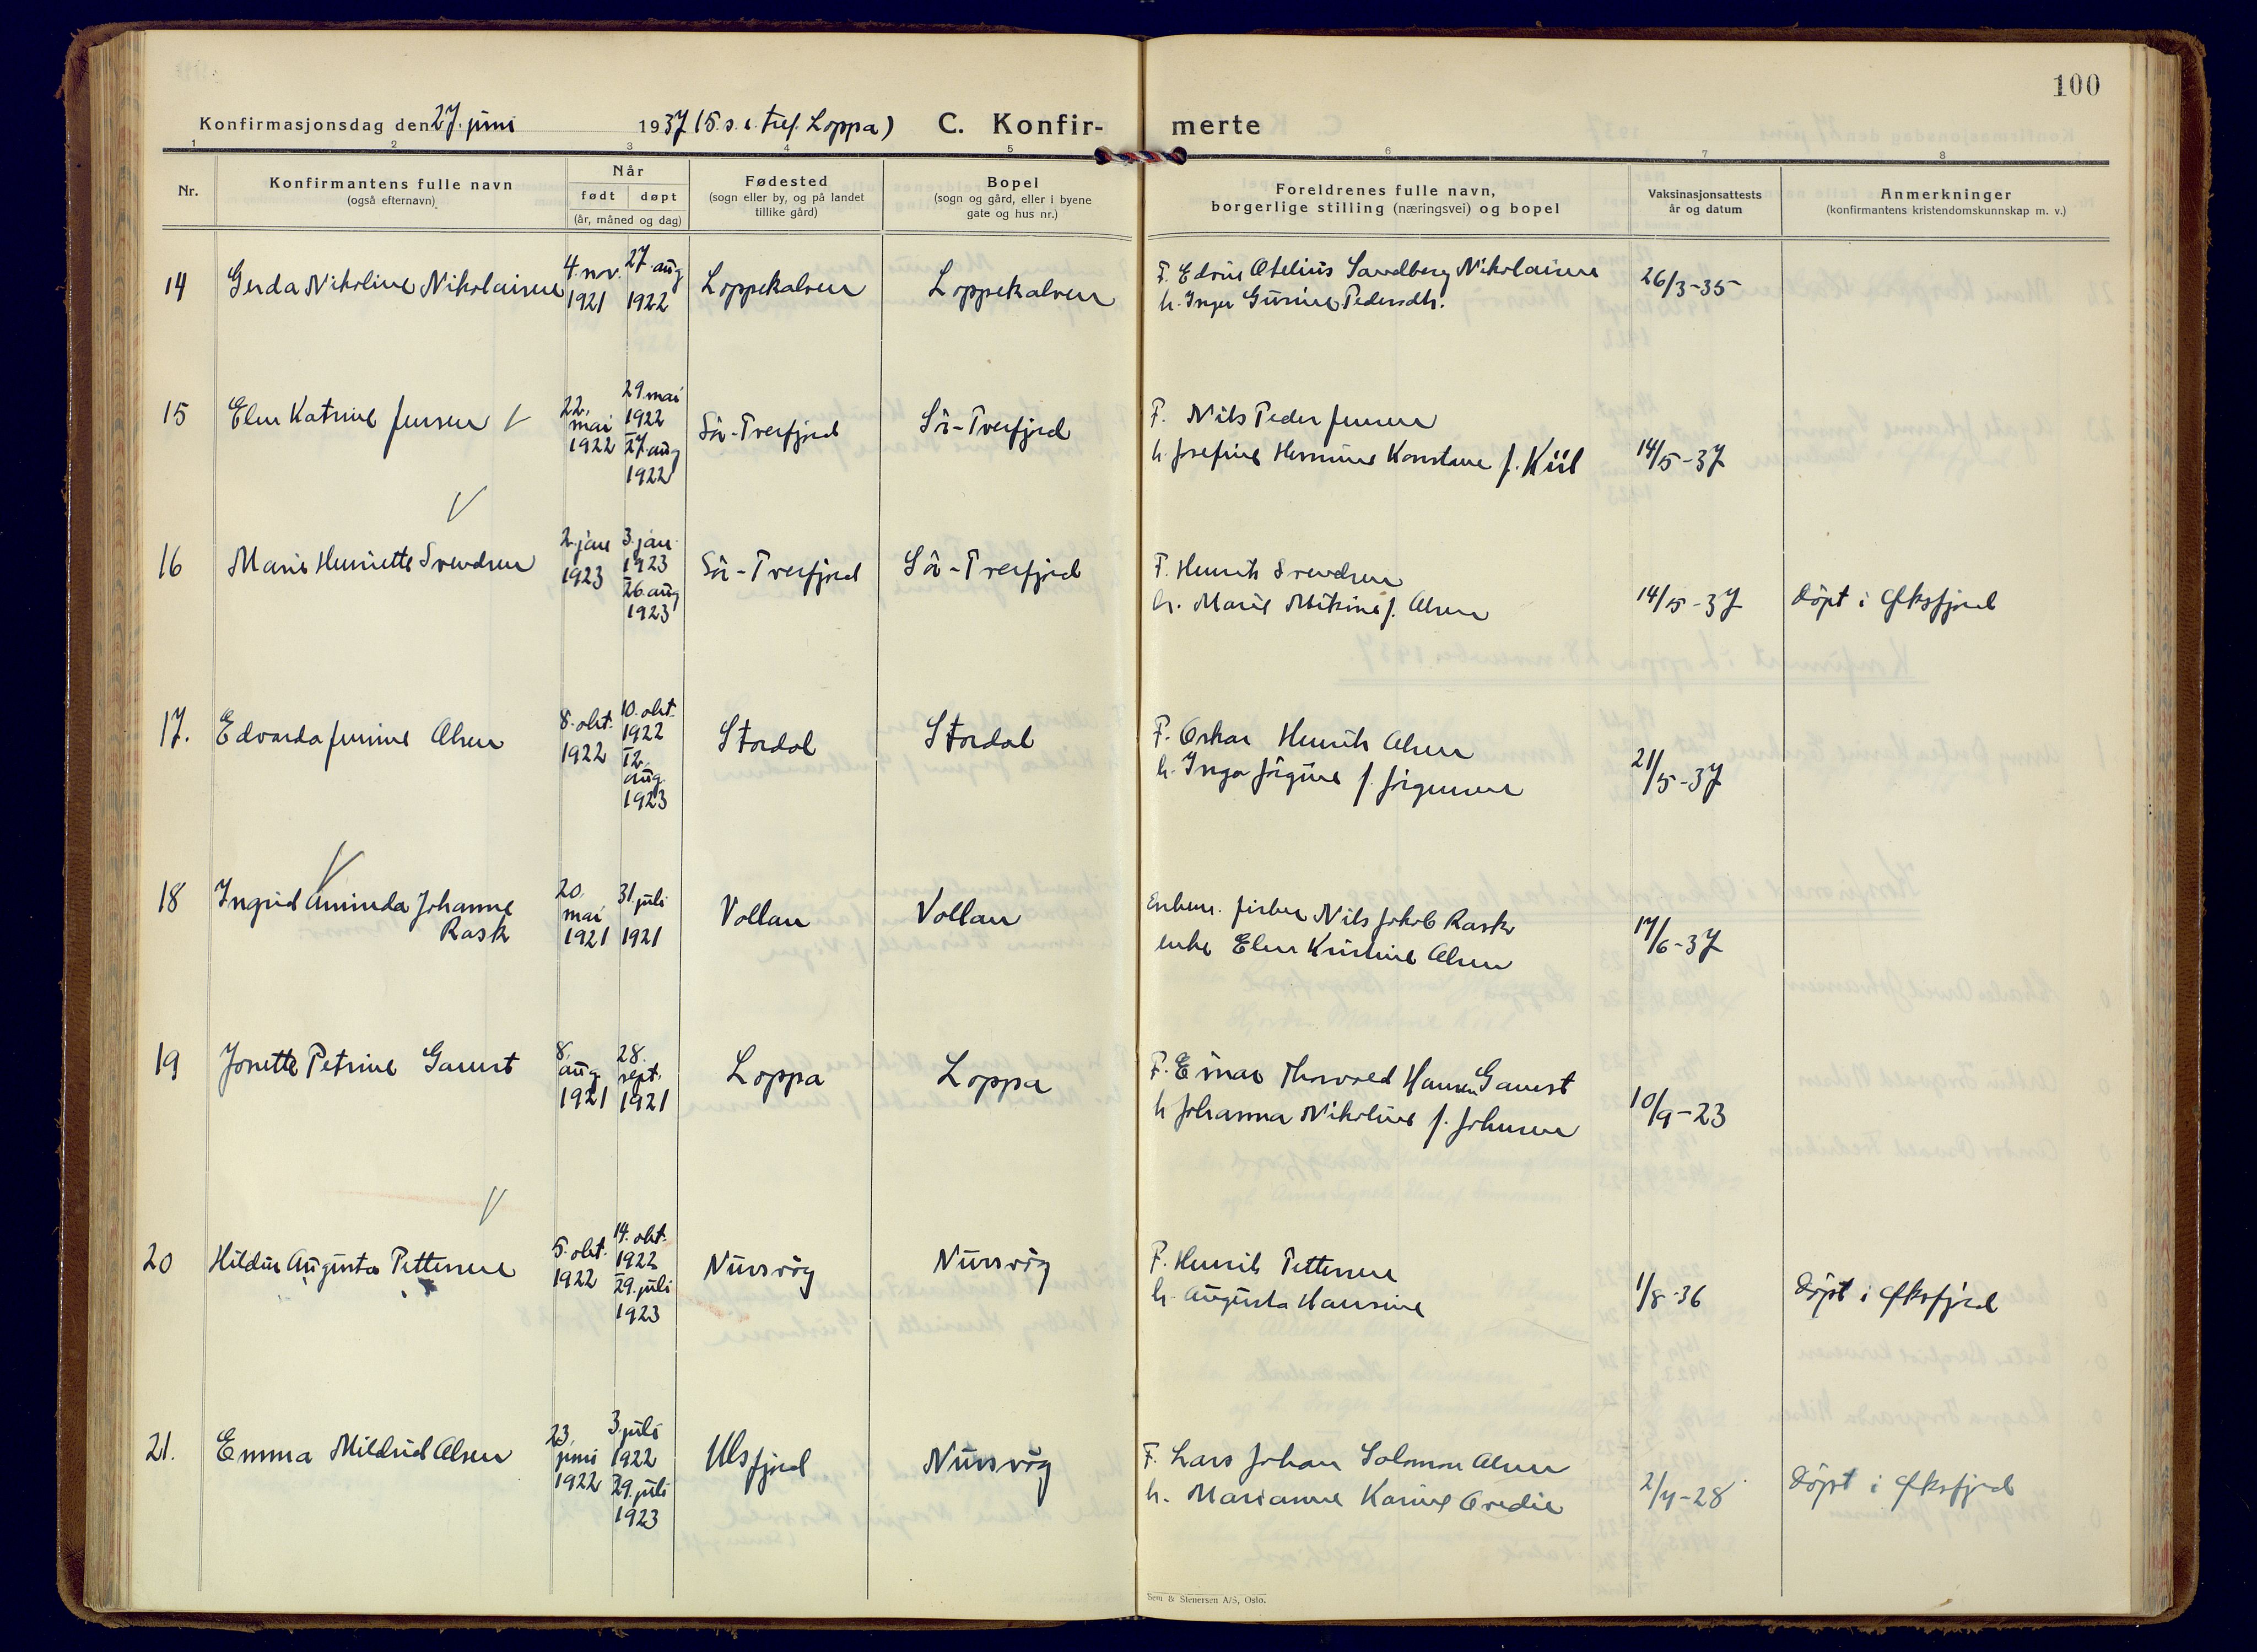 100
Konfirmasjonsdag den 27. juni 1937 (5. s. e. tref. Loppa) C. Konfir- merte
1 2 3 4 5 6 7 8
Nr.
Konfirmantens fulle navn
(også efternavn)
Når
født døpt
(år, måned og dag)
Fødested
(sogn eller by, og på landet
tillike gård)
Bopel
(sogn og gård, eller i byene
gate og hus nr.)
Foreldrenes fulle navn,
borgerlige stilling (næringsvei) og bopel
Vaksinasjonsattests
år og datum
Anmerkninger
(konfirmantens kristendomskunnskap m. v.)
14 Gerda Nikoline Nikolaisen
4. nov. 1921
27. aug 1922
Loppekalven
Loppekalven
F. Edvin Otelius Sandberg Nikolaisen
h. Inger Gurine Pedersdtr.
26/3-35
15 Elen Katrine Jensen
22. mai 1922
29. mai 1922
27. aug 1922
Sör-Tverfjord
Sör-Tverfjord
F. Nils Peder Jensen
h. Josefine Hermine Konstane f. Kiil
14/5-37
16 Marie Henriette Svendsen
2. jan 1923
3. jan. 1923
26. aug 1923
Sör-Tverfjord
Sör-Tverfjord
F. Henrik Svendsen
h. Marie Mikine f. Olsen
14/5-37
Döpt i Öksfjord
17. Edvarda Jensine Olsen
8. okt. 1922
10. okt. 1922
12. aug. 1923
Stordal
Stordal
F. Oskar Henrik Olsen
h. Inga Jörgine f. Jörgensen
21/5-37
18 Ingrid Aminda Johanne
Rask
20. mai 1921
31. juli 1921
Vollan
Vollan
Enkem. fisker Nils Jakob Rask
enke Elen Kristine Olsen
17/6-37
19 Jonette Petrine Gamst
8. aug 1921
28. sept. 1921
Loppa
Loppa
F. Einar Thorvald Hansen Gamst
h Johanna Nikoline f. Johnsen
10/9-23
20 Hildur Augusta Pettersen
5. okt. 1922
14. okt. 1922
29. juli 1923
Nuvsvåg
Nuvsvåg
F. Henrik Pettersen
h. Augusta Hansine
1/8-36
Döpt i Öksfjord
21. Emma Mildrid Olsen
23. juni 1922
3. juli 1922
29. juli 1923
Ulsfjord
Nuvsvåg
F. Lars Johan Salomon Olsen
h. Marianne Karine Ovedie
2/4-28
Döpt i Öksfjord
Sem & Stenersen A/S, Oslo.